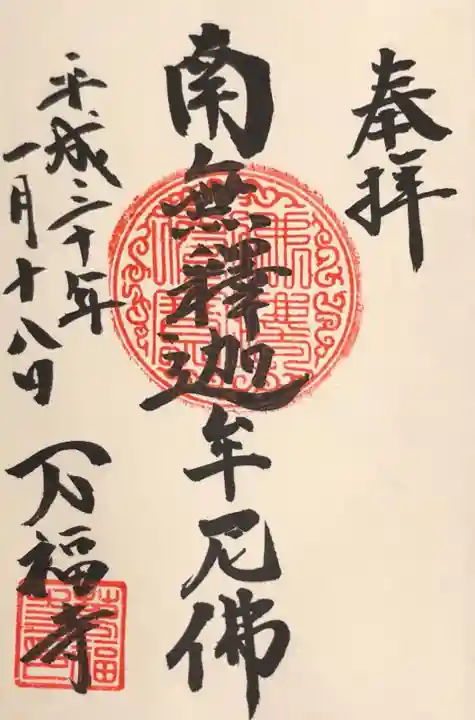 奉拝
南無釋迦牟尼佛
平成三十年
一月十八日
万福寺